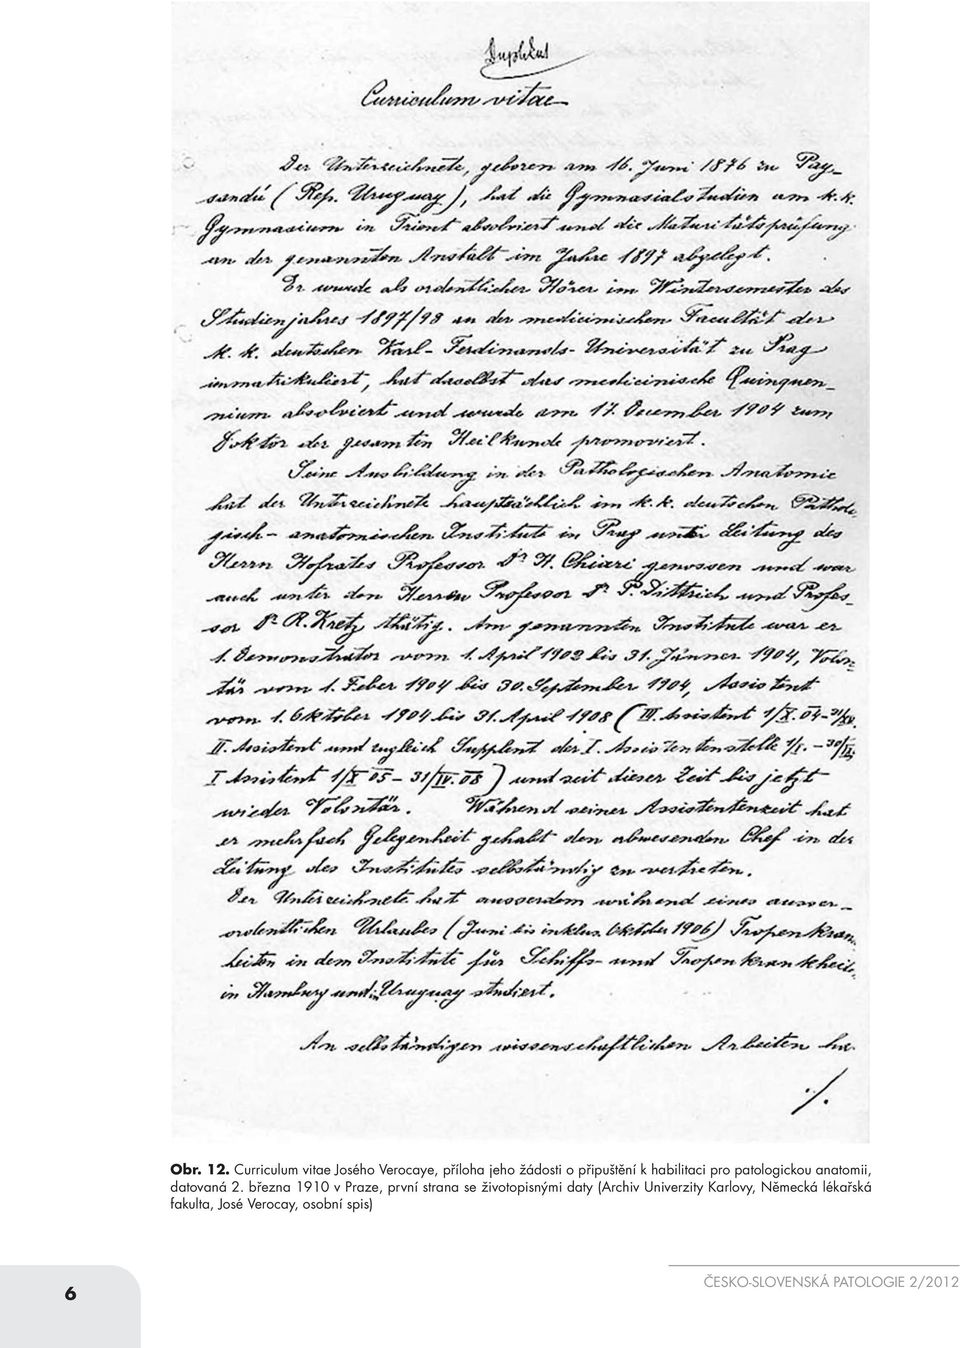 Duplikat
Curriculum vitae
Der Unterzeichnete, geboren am 16. Juni 1876 zu Pay_
sandú (Rep. Uruguay), hat die Gymnasialstudien am k.k.
Gymnasium in Trient absolviert und die Maturitätsprüfung
an der genannten Anstalt im Jahre 1897 abgelegt.
Er wurde als ordentlicher Hörer im Wintersemester des
Studienjahres 1897/98 an der medicinischen Facultät der
k. k. deutschen Karl-Ferdinands-Universität zu Prag
immatrikuliert, hat daselbst das medicinische Quinquen_
nium absolviert und wurde am 17. December 1904 zum
Doktor der gesamten Heilkunde promoviert.
Seine Ausbildung in der Pathologischen Anatomie
hat der Unterzeichnete hauptsächlich im k.k. deutschen Patholo_
gisch-anatomischen Institute in Prag unter Leitung des
Herrn Hofrates Professor Dr H. Chiari genossen und war
auch unter den Herren Professor Dr P. Dittrich und Profes_
sor Dr R. Kretz thätig. Am genannten Institute war er
1. Demonstrator vom 1. April 1902 bis 31. Jänner 1904, Volon-
tär vom 1. Feber 1904 bis 30. September 1904, Assistent
vom 1. Oktober 1904 bis 31. April 1908 (III. Assistent 1/X. 04-
II. Assistent und zugleich Supplent der I. Assistentenstelle 1/I. -30/
I Assistent 1/X 05 - 31/IV. 08) und seit dieser Zeit bis jetzt
wieder Volontär. Während seiner Assistentenzeit hat
er mehrfach Gelegenheit gehabt den abwesenden Chef in der
Leitung des Institutes selbständig zu vertreten.
Der Unterzeichnete hat ausserdem während eines ausser_
ordentlichen Urlaubes (Juni bis inklus. Oktober 1906) Tropenkran_
heiten in dem Institute für Schiffs- und Tropenkrankheiten
in Hamburg und in Uruguay studiert.
An selbständigen wissenschaftlichen Arbeiten ha
./.
Obr. 12. Curriculum vitae Josého Verocaye, příloha jeho žádosti o připuštění k habilitaci pro patologickou anatomii,
datovaná 2. března 1910 v Praze, první strana se životopisnými daty (Archiv Univerzity Karlovy, Německá lékařská
fakulta, José Verocay, osobní spis)
6
ČESKO-SLOVENSKÁ PATOLOGIE 2/2012